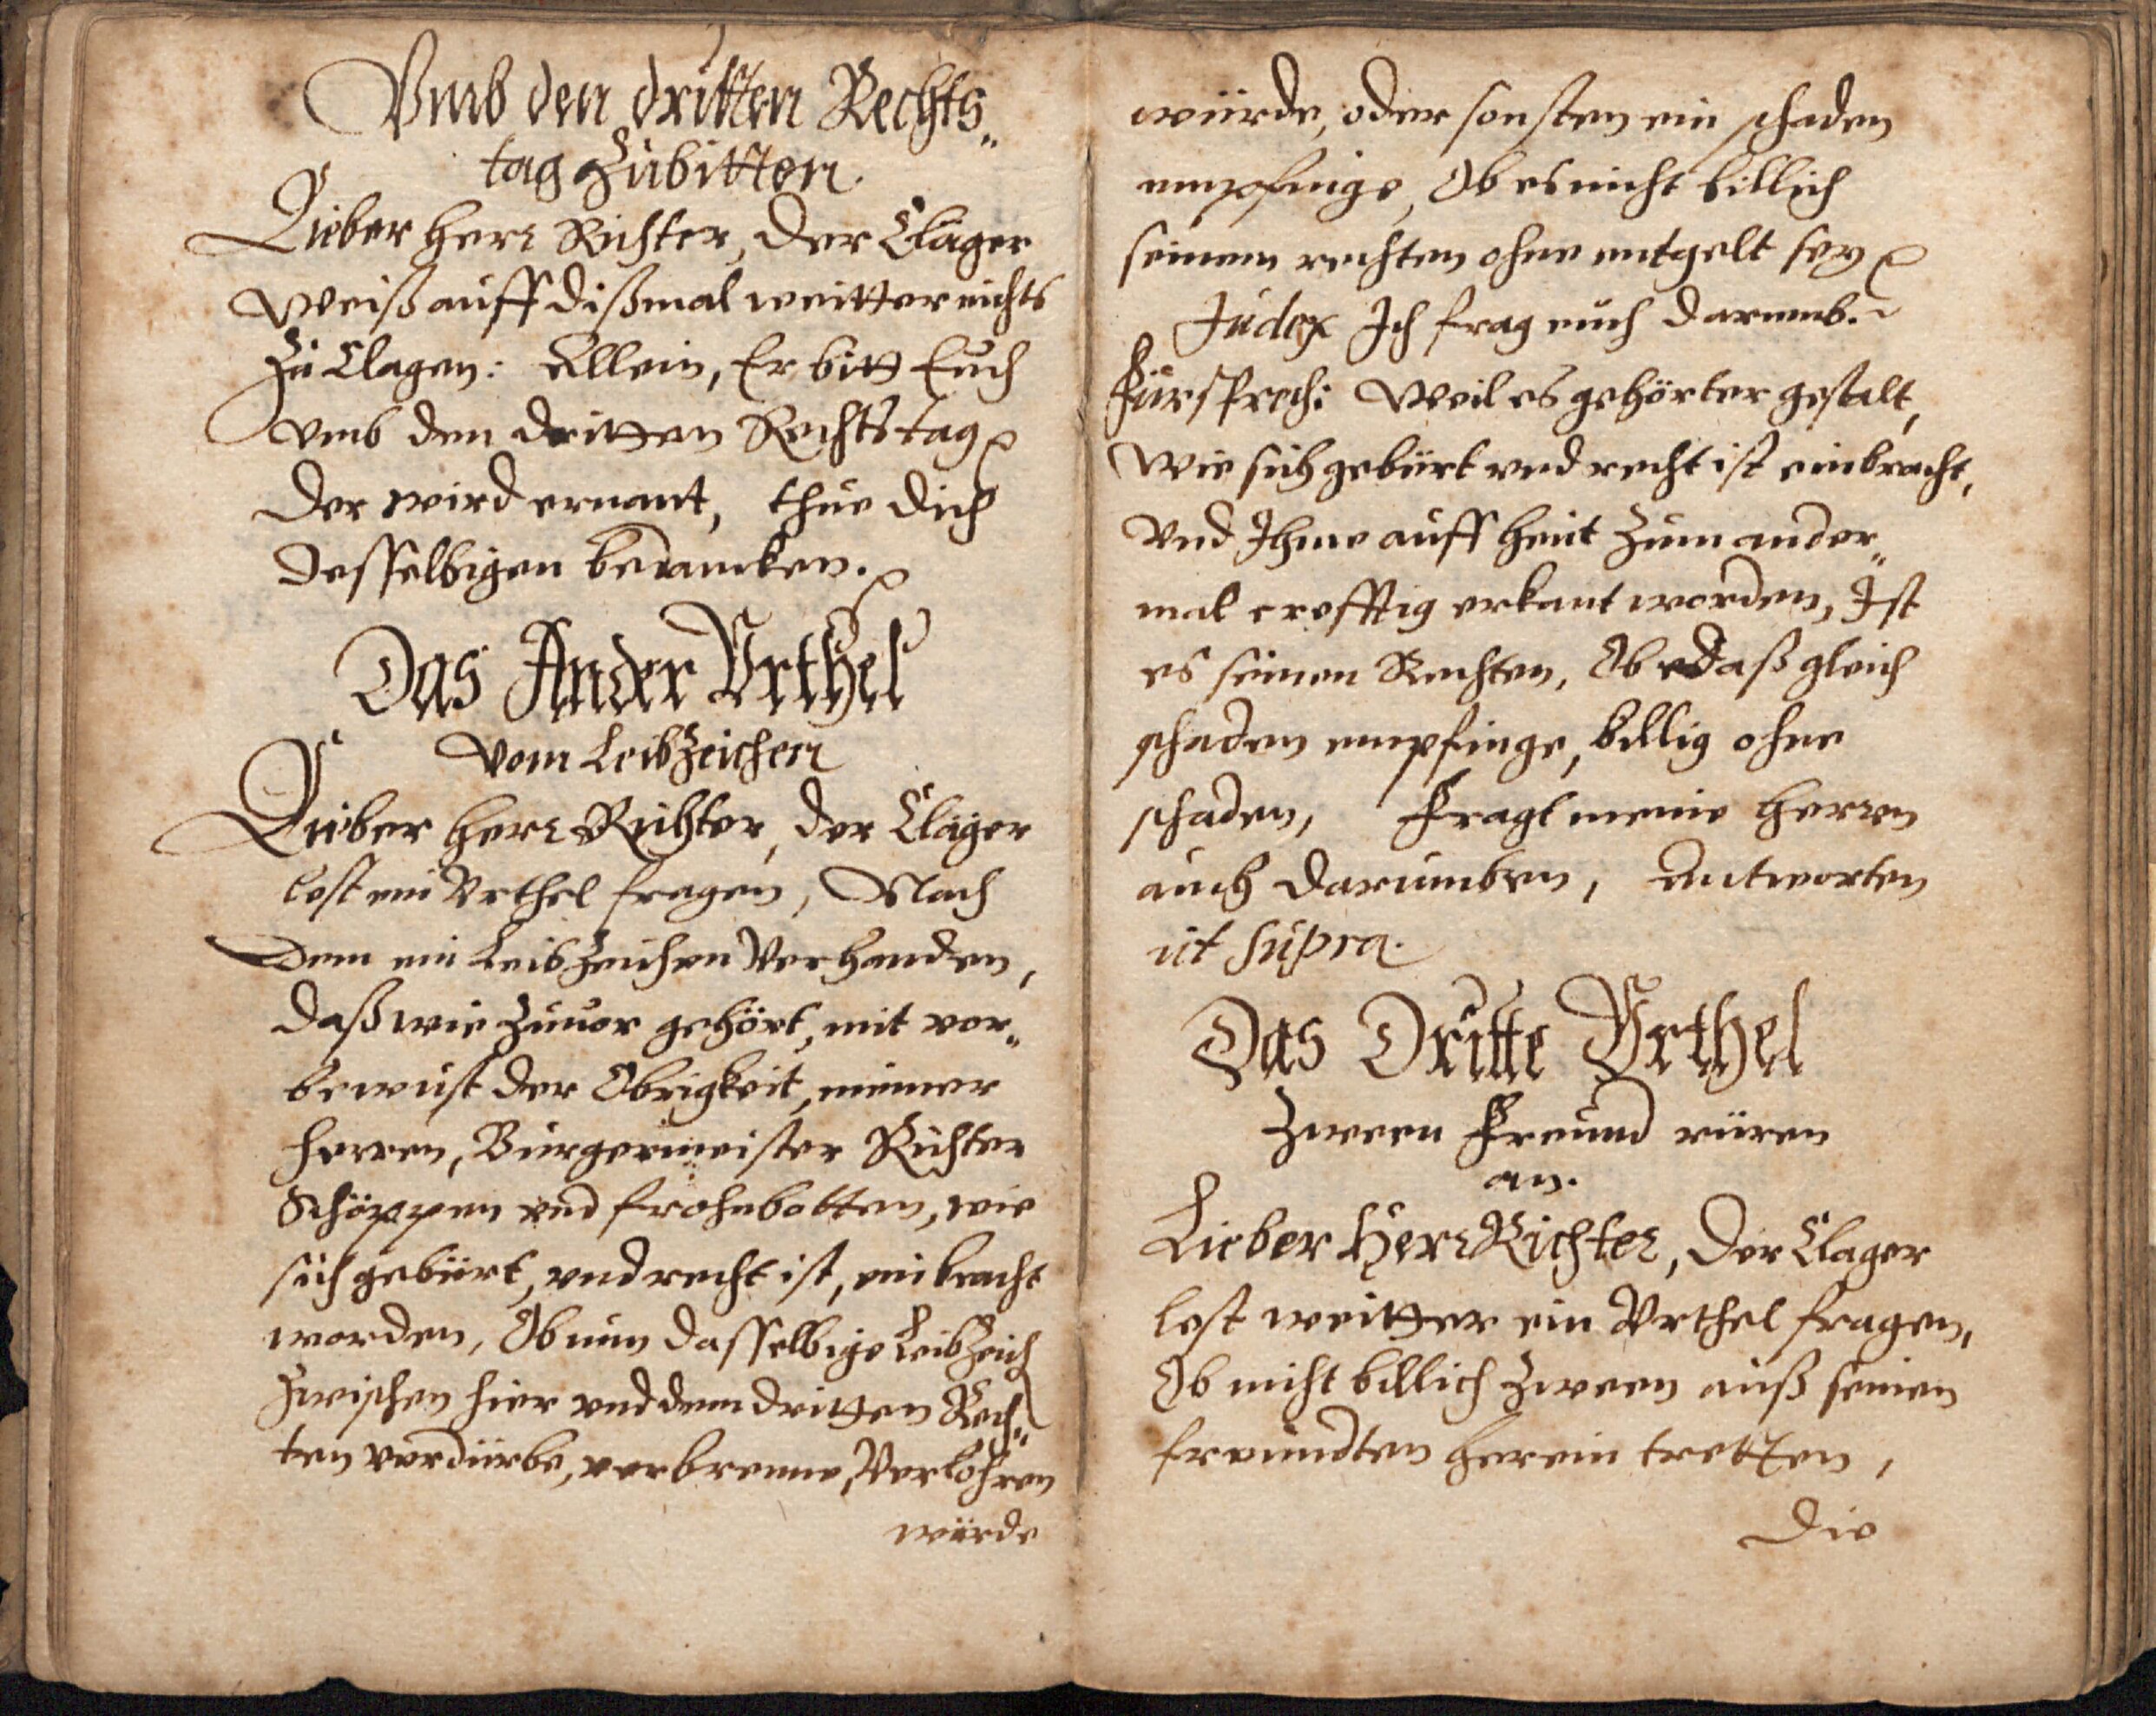 Vmb den dritten Rechts„
tag Zubitten
Lieber Herr Richter, Der Clager
Weiß auff dißmal weitter nichts
Zu Clagen: Allein, Er bitt Euch
vmb den dritten Rechtstag
Der wird ernant, thue dich
desselbigen bedancken.
Das Ander Vrthel
Vom LeibZeichen
Lieber Herr Richter, der Clager
lest ein Vrthel fragen, Nach
Dem ein LeibZeichen Verhanden,
daß wie Zuuor gehört, mit vor„
bewust der Obrigkeit, meiner
Herren, Burgermeister Richter
Schöppen vnd frohnbotten, wie
sich gebürt, vnd recht ist, einbracht
worden, Ob nun dasselbige LeibZeich
Zwischen hier vnd dem dritten Rech„
ten verdürbe, verbrenne, Verlohren
würde
würde, oder sonsten ein schaden
empfinge, Ob es nicht billich
seinem rechten ohne entgelt sey
Judex Ich frag euch darumb.
Fürsprech: Weil es gehörter gestalt,
Wie sich gebürt vnd recht ist einbracht,
Vnd Ihme auff heut Zum ander„
mal crefftig erkant worden, Ist
es seinen Rechten, Ob daß gleich
schaden empfinge, billig ohne
schaden, Fragt meine Herren
auch darumben, Antworten
ut supra.
Das Dritte Vrthel
Zween Freund rüren
an.
Lieber Herr Richter, Der Clager
lest weitter ein Vrthel fragen,
Ob nicht billich Zween auß seinen
freundten herein tretten,
Die